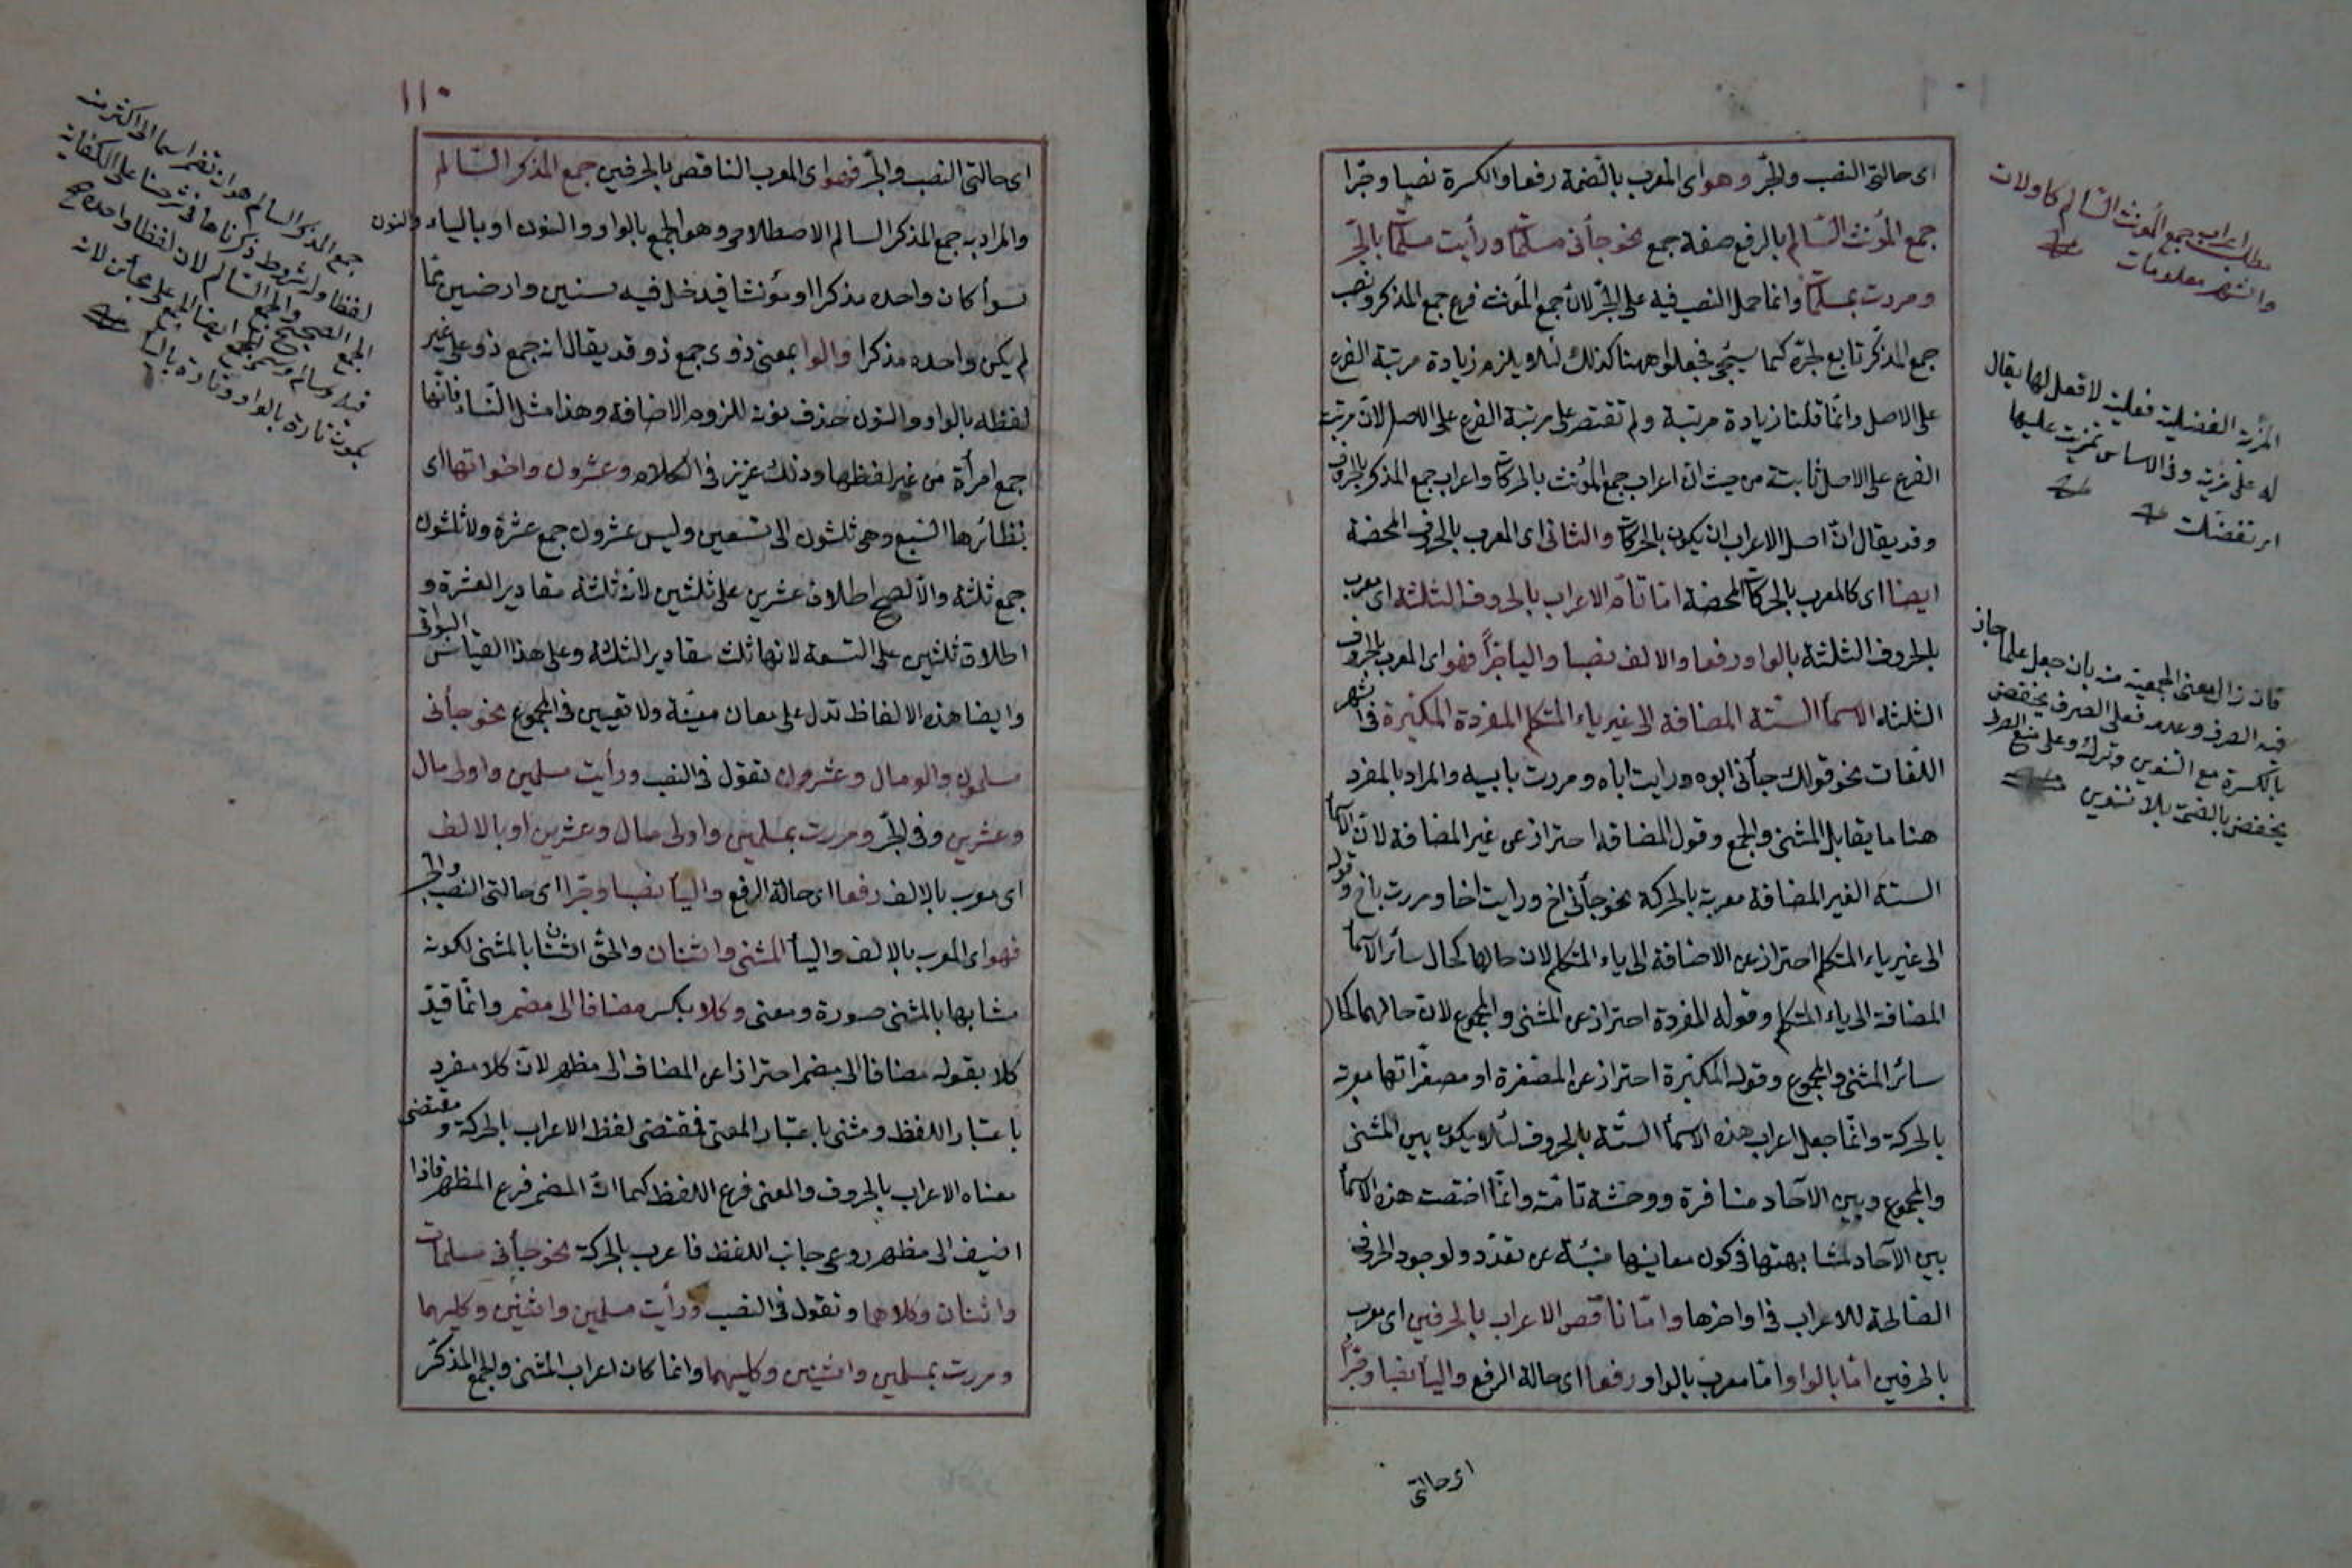 اى حالتى النصب والجرّ وهو اى المعرب بالضمة رفعا والكسرة نصبا وجرّا
جمع المؤنث السّالم بالرفع صفة جمع نحو جأنى مسلمات ورأيت مسلمات بالجرّ
ومررت بمسلمات وانما حمل النصب فيه على الجرّ لان جمع المؤنث فرع جمع المذكر ونصب
جمع المذكر تابع لجرّه كما سيجئ فجعلوا ههنا كذلك لئلا يلزم زيادة مرتبة الفرع
على الاصل وانّما قلنا زيادة مرتبة ولم تقتصر على مرتبة الفرع على الاصل لانّ مرتبة
الفرع على الاصل ثابتة من حيث انّ اعراب جمع المؤنث بالحركات واعراب جمع المذكر بالحروف
وقد يقال انّ اصل الاعراب ان يكون بالحركات والثانى اى المعرب بالحروف المحضة
ايضا اى كالمعرب بالحركات المحضة امّا تامّ الاعراب بالحروف الثلثة اى معرب
بالحروف الثلثة بالواو رفعا والالف نصبا واليأ جرّاً فهو اى المعرب بالحروف
الثلثه الاسمأ الستّة المضافة الى غير ياء المتكلم المفردة المكبّرة فى اشهر
اللغات نحو قولك جأنى ابوه ورايت اباه ومررت بابيه والمراد بالمفرد
هنا ما يقابل المثنى والجمع وقول المضافه احتراز عن غير المضافة لانّ الاسمأ
الستة الغير المضافة معربة بالحركة نحو جأنى اخ ورايت اخا ومررت باخ وقوله
الى غير ياء المتكلم احتراز عن الاضافة الى ياء المتكلم لان حالها كحال سائر الاسمأ
المضافة الى ياء المتكلم وقوله المفردة احتراز عن المثنى والمجموع لانّ حالهما كحال
سائر المثنى والمجموع وقوله المكبّرة احتراز عن المصغرة او مصغّراتها معربة
بالحركة وانّما جعل اعراب هذه الاسمأ الستّة بالحروف لئلا يكون بين المثنى
والمجموع وبين الآحاد منافرة ووحشة تامّة وانّما اختصت هذه الاسمأ
بين الآحاد لمشابهتها فى كون معانيها منبئة عن تعدّد ولوجود الحرف
الصالحة للاعراب فى اواخرها وامّا ناقص الاعراب بالحرفين اى معرب
بالحرفين امّا بالواو امّا معرب بالواو رفعا اى حالة الرفع واليأ نصبا وجرّاً
اى حالتى
مطلب اعراب جمع المؤنث السّالم كاولات
واشهر معلومات
المزية الفضيلة فعلية لا فعل لها يقال
له على مزية وفى الاساس تمزيت عليها
اى تفضّلت
فان زال معنى الجمعية منه بان جعل علما جاز
فيه الصرف وعدم فعلى الصرف يخفض
بالكسرة مع التنوين وترك وعلى منع الصرف
يخفض بالفتحة بلا تنوين
١١٠
اى حالتى النصب والجرّ فهو اى المعرب الناقص بالحرفين جمع المذكر السّالم
والمراد به جمع المذكر السالم الاصطلاحى وهو الجمع بالواو والنون او بالياء والنون
سوأ كان واحده مذكرا او مؤنثا فيدخل فيه سنين وارضين ممّا
لم يكن واحده مذكرا والوا بمعنى ذوى جمع ذو وقد يقال انه جمع ذو على غير
لفظه بالواو والنون حذف نونه للزوم الاضافة وهذا مثل النساء فانّها
جمع امرأة من غير لفظها وذلك عزيز فى الكلام وعشرون واخواتها اى
نظائرها السّبع وهى ثلثون الى تسعين وليس عشرون جمع عشرة ولا ثلثون
جمع ثلثة والّا لصح اطلاق عشرين على ثلثين لانّه ثلثة مقادير العشرة و
اطلاق ثلثين على التسعة لانها ثلث مقادير الثلثة وعلى هذا القياس البواقى
وايضا هذه الالفاظ تدل على معان معيّنة ولا تعيين فى المجموع نحو جأنى
مسلمون والو مال وعشرون تقول فى النصب ورأيت مسلمين واولى مال
وعشرين وفى الجرّ ومررت بمسلمين واولى مال وعشرين او بالالف
اى معرب بالالف رفعا اى حالة الرفع واليأ نصبا وجرّا اى حالتى النصب والجر
فهو اى المعرب بالالف واليأ المثنى واثنان والحق اثنان بالمثنى لكونه
مشابها بالمثنى صورة ومعنى وكلا بكسر مضافا الى مضمر وانّما قيّد
كلا بقوله مضافا الى مضمر احترازا عن المضاف الى مظهر لانّ كلا مفرد
باعتبار اللفظ ومثنى باعتبار المعنى فمقتضى لفظ الاعراب بالحركة ومقتضى
معناه الاعراب بالحروف والمعنى فرع اللفظ كما انّ المضمر فرع المظهر فاذا
اضيف الى مظهر روعى جانب اللفظ فاعرب بالحركة نحو جأنى مسلمان
واثنان وكلاهما وتقول فى النصب ورأيت مسلمين واثنين وكليهما
ومررت بمسلمين واثنين وكليهما وانما كان اعراب المثنى والجمع المذكر
جمع المذكر السالم هو ان تضم اسما الى اكثر منه
لفظا وله شروط ذكرناها فى شرحنا على الكفاية
الجمع الصحيح والجمع السّالم لان لفظ واحده صح
فيه وسالم وسمى ايضا الجمع على هجائين لانه
يكون تارة بالواو وتارة باليأ